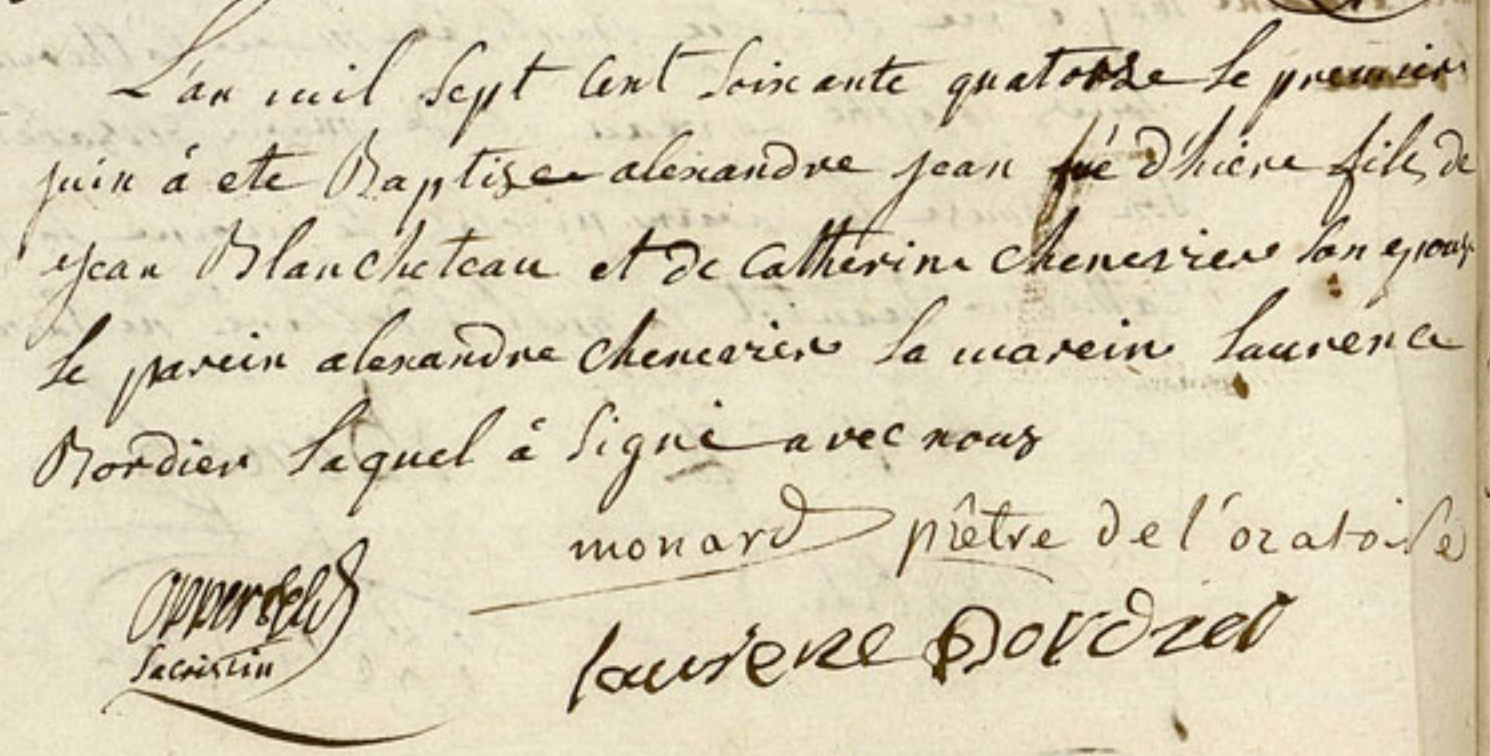 L'an mil sept cent soixante quatorze le premier
juin á ete Baptise alexandre jean né d'hiere fils de
jean Blancheteau et de Catherine Chenevier son epous
le parein alexandre Chenevier la mareine laurence
Bordier laquel â signé avec nous
monard prêtre de l'oratoire
sacristin
laurene Bordier